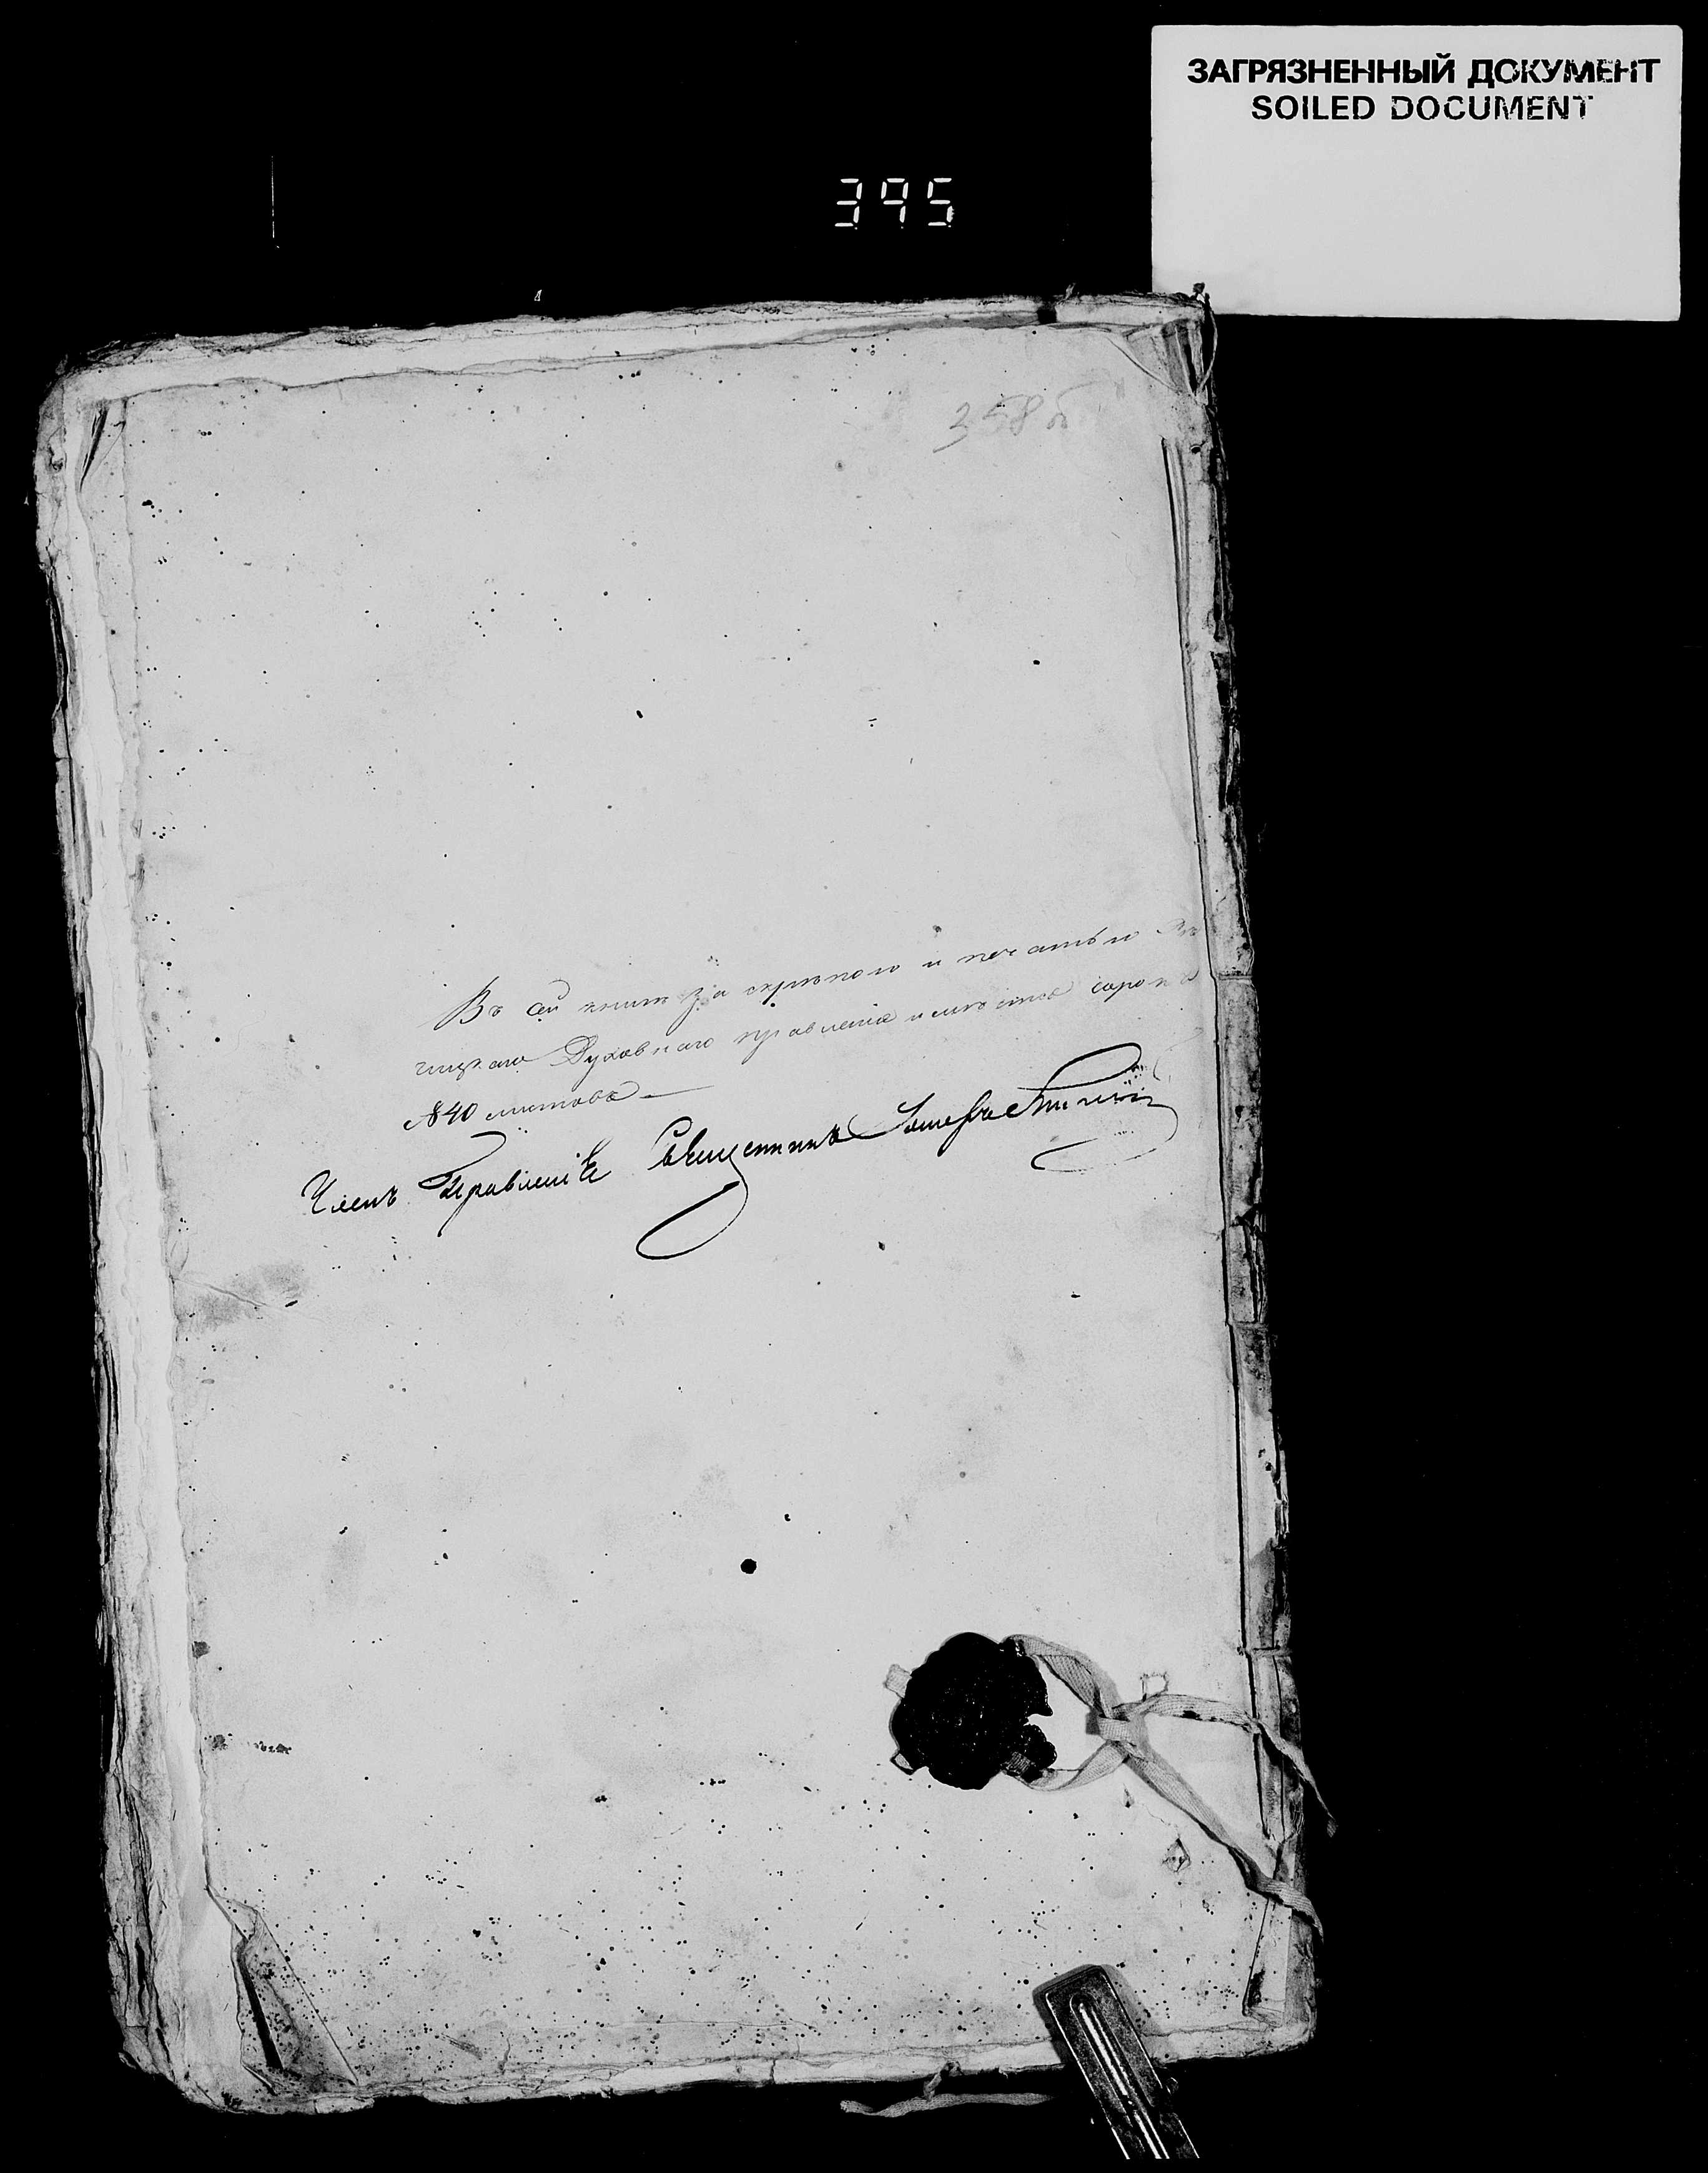 ЗАГРЯЗНЕННЫЙ ДОКУМЕНТ
SOILED DOCUMENT
395
358 об
Въ сей книгѣ за скрѣпою и печатью
Духовнаго правленія имѣется сорокъ
№ 40 листовъ
Членъ Правленія Священникъ